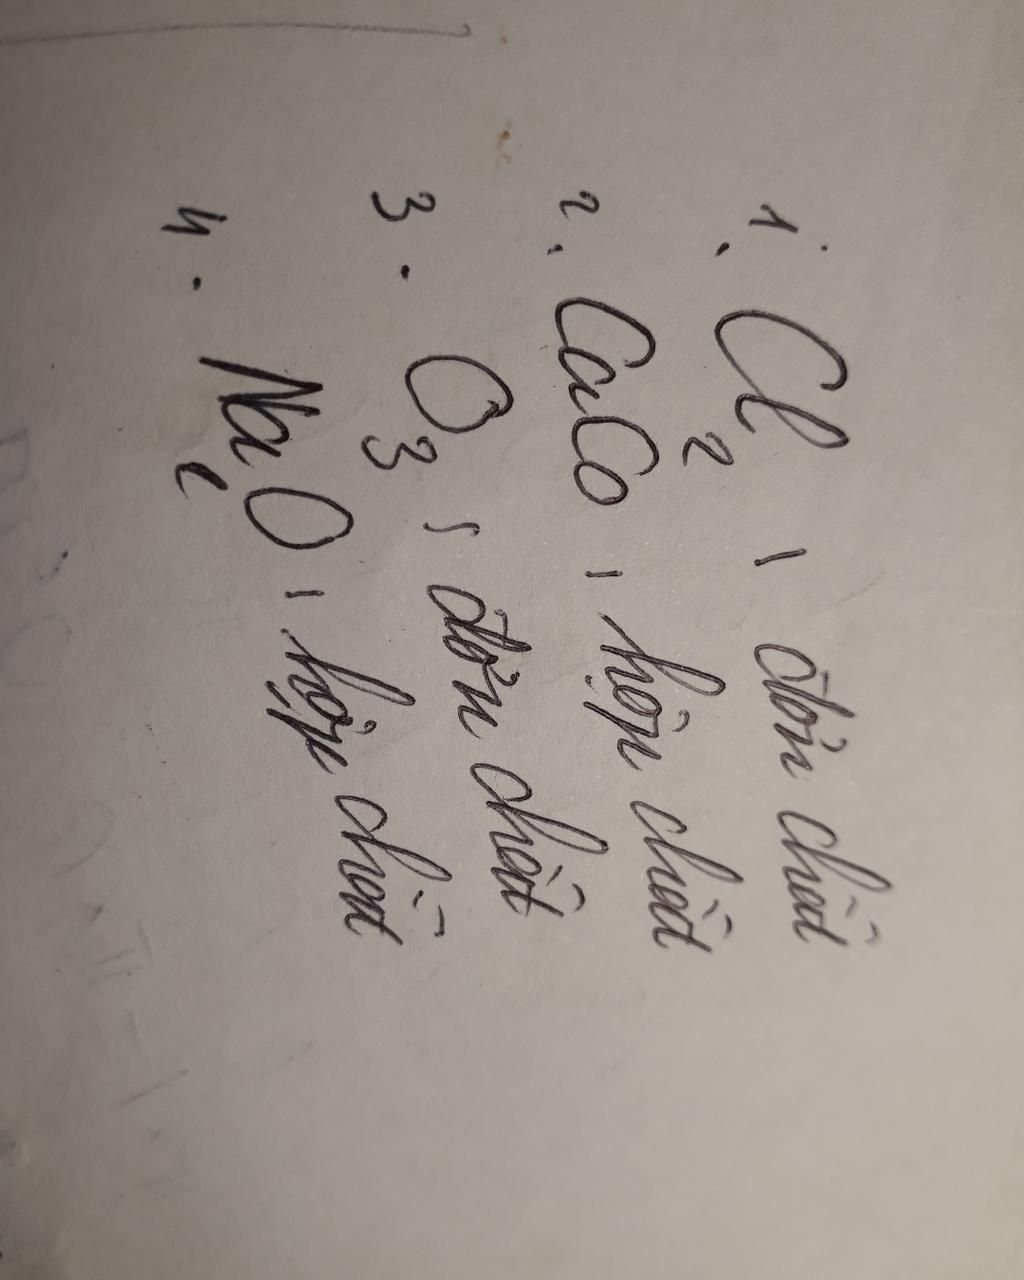 1. Cl₂, đơn chất
2. CaCo, hợp chất
3. O₃, đơn chất
4. Na₂O, hợp chất